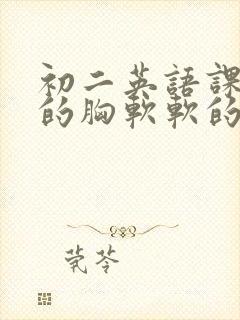 初二英語課
的胸軟軟的
莞苓